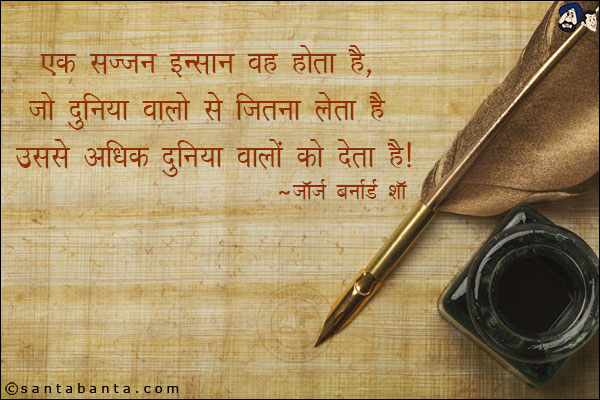 एक सज्जन इन्सान वह होता है,
जो दुनिया वालो से जितना लेता है
उससे अधिक दुनिया वालों को देता है!
~जॉर्ज बर्नार्ड शॉ
©santabanta.com